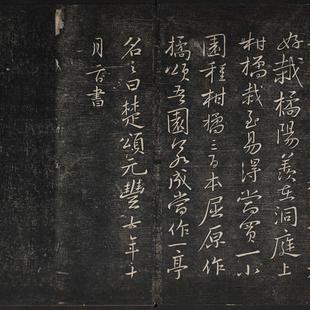 好栽橘陽羨在洞庭上
柑橘栽至易得當買一小
園種柑橘三百本屈原作
橘頌吾園若成當作一亭
名之曰楚頌元豐七年十
月二日書